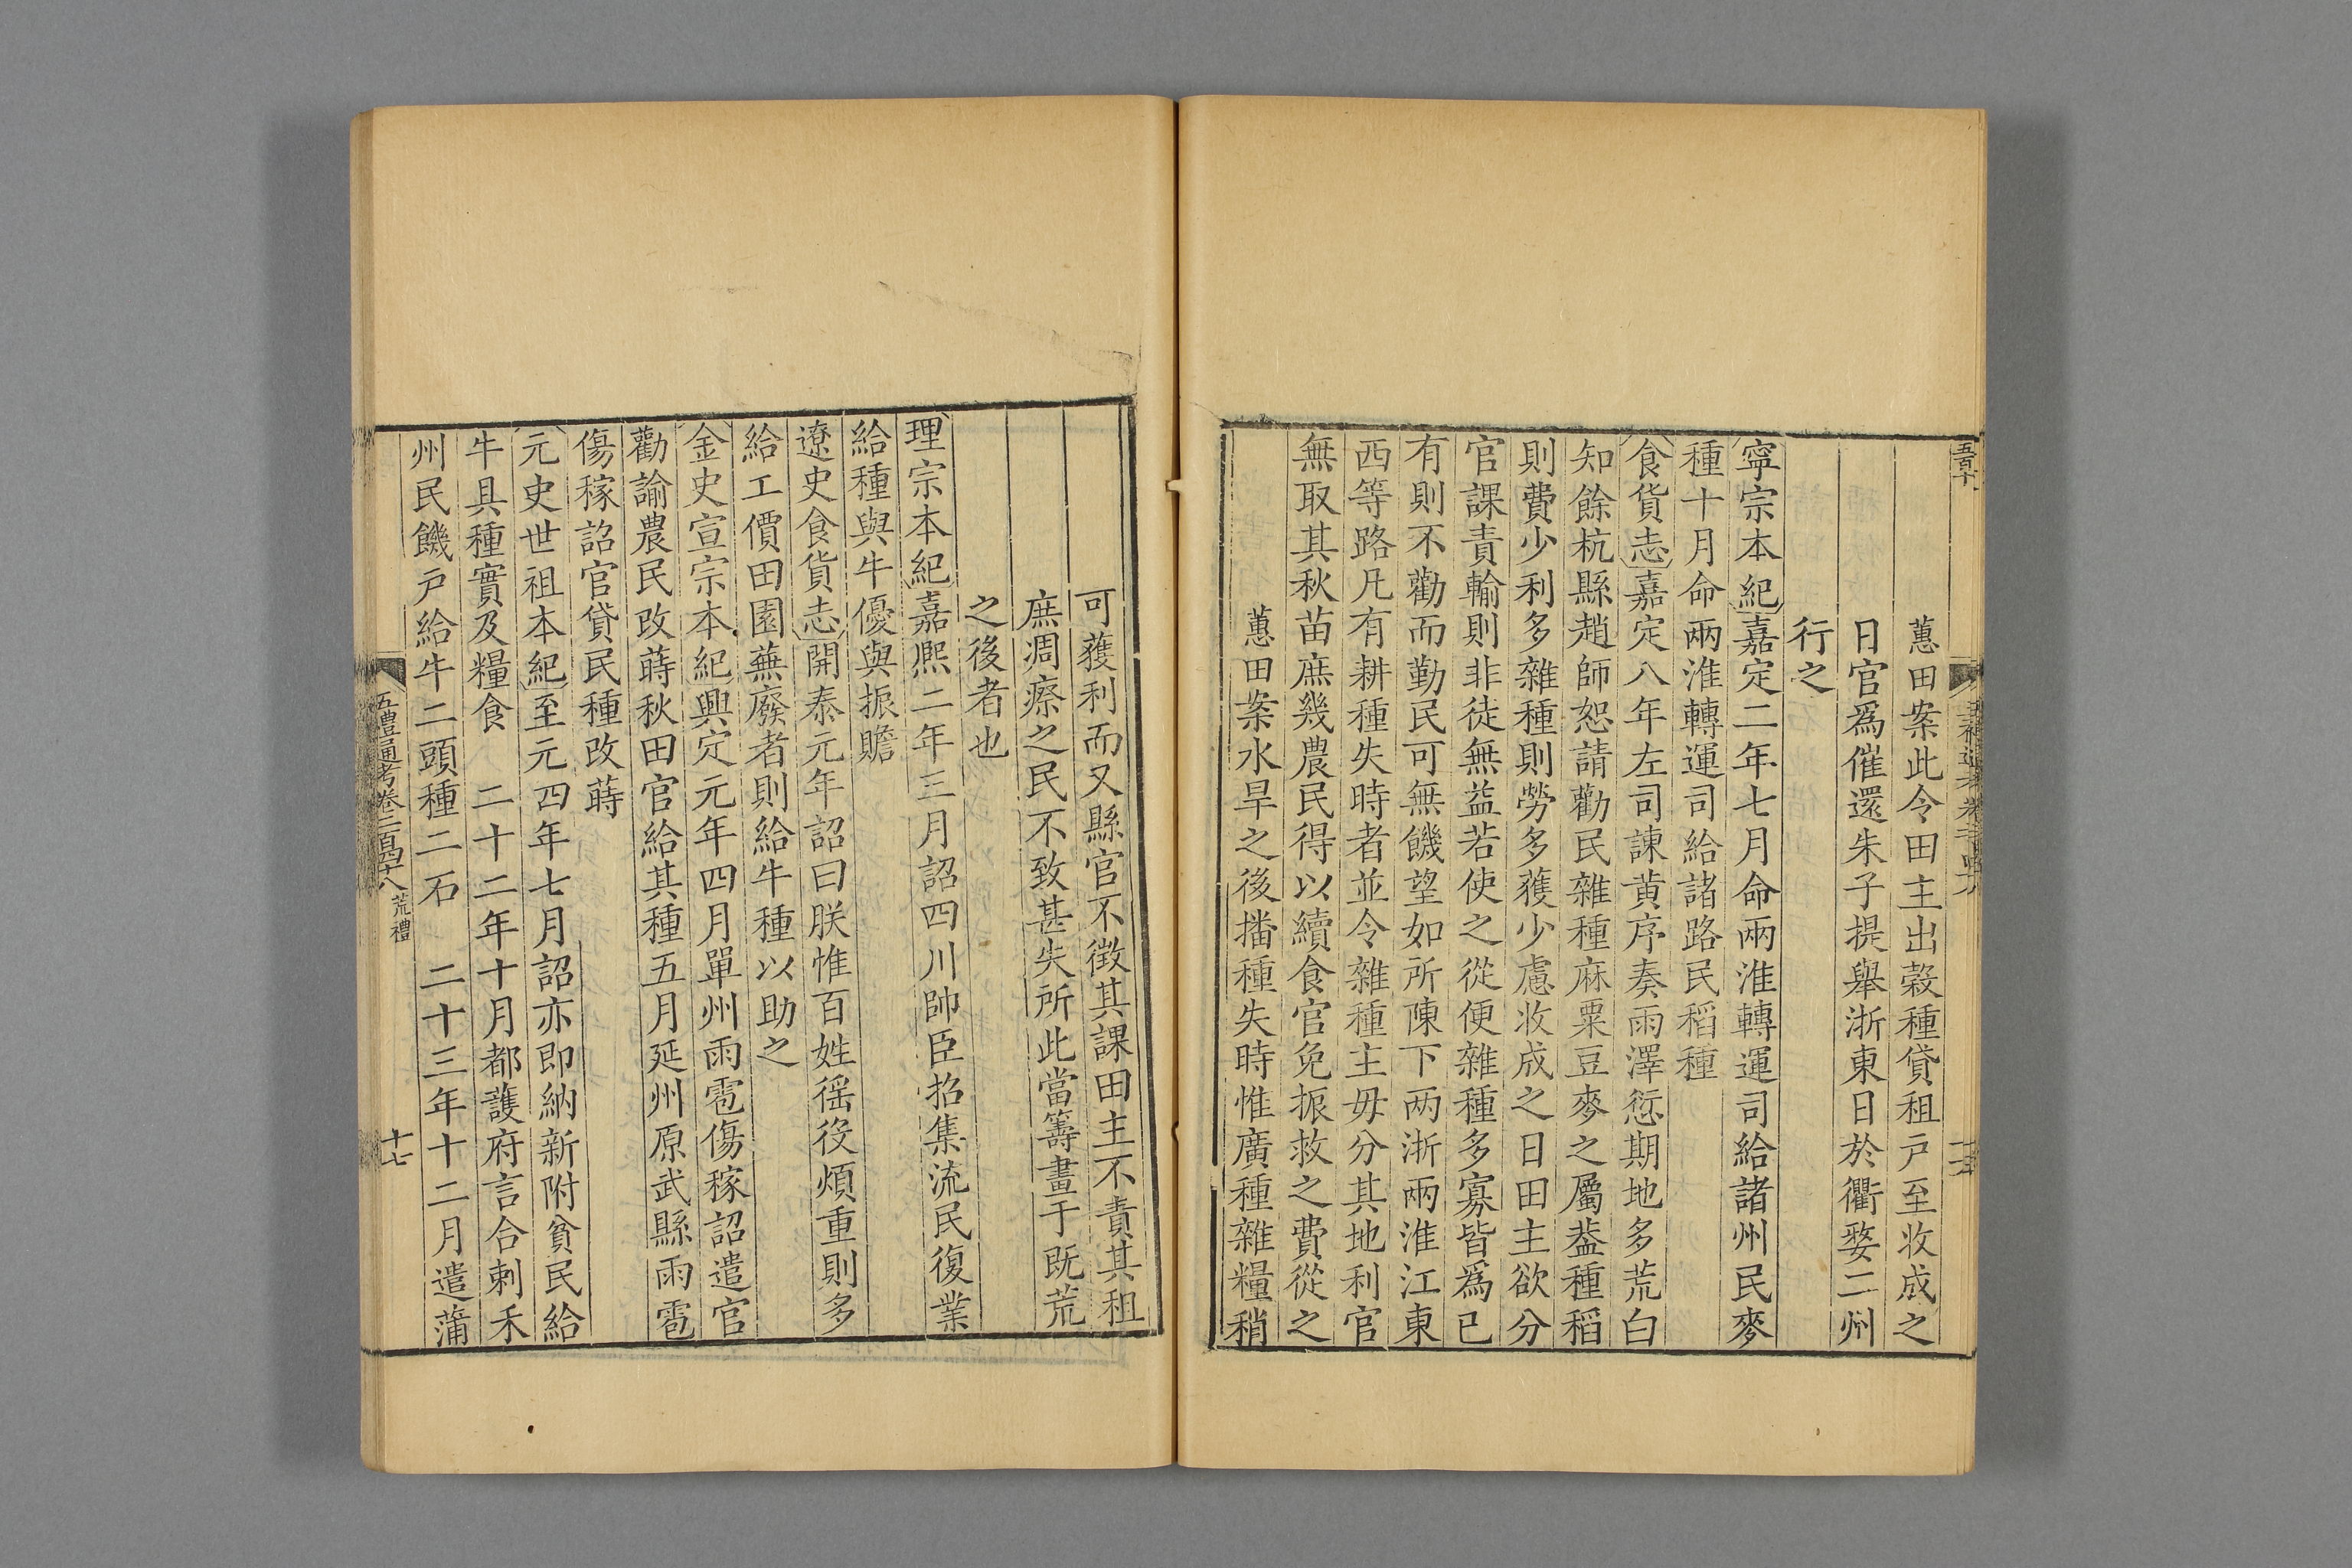 五百十
蕙田案此令田主出穀種貸租戸至收成之
日官爲催還朱子提舉浙東日於衢婺二州
行之
寧宗本紀嘉定二年七月命兩淮轉運司給諸州民麥
種十月命兩淮轉運司給諸路民稻種
食貨志嘉定八年左司諫黄序奏雨澤愆期地多荒白
知餘杭縣趙師恕請勸民雜種麻粟豆麥之屬葢種稻
則費少利多雜種則勞多獲少慮收成之日田主欲分
官課責輸則非徒無益若使之從便雜種多寡皆爲已
有則不勸而勤民可無饑望如所陳下兩浙兩淮江東
西等路凡有耕種失時者並令雜種主毋分其地利官
無取其秋苗庶幾農民得以續食官免振救之費從之
蕙田案水旱之後播種失時惟廣種雜糧稍
可獲利而又縣官不徴其課田主不責其租
庶凋瘵之民不致甚失所此當籌畫于既荒
之後者也
理宗本紀嘉熙二年三月詔四川帥臣招集流民復業
給種與牛優與振贍
遼史食貨志開泰元年詔曰朕惟百姓徭役煩重則多
給工價田園蕪廢者則給牛種以助之
金史宣宗本紀興定元年四月單州雨雹傷稼詔遣官
勸諭農民改蒔秋田官給其種五月延州原武縣雨雹
傷稼詔官貸民種改蒔
元史世祖本紀至元四年七月詔亦即納新附貧民給
牛具種實及糧食 二十二年十月都護府言合剌禾
州民饑戸給牛二頭種二石 二十三年十二月遣蒲
五禮通考卷二百四十八 荒禮
十七